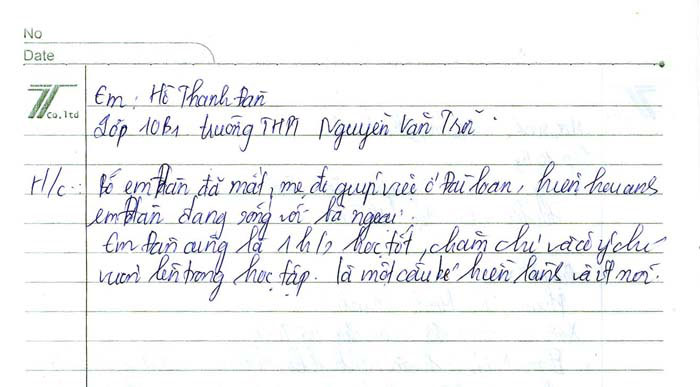 No
Date
TT Co.,ltd
Em: Hồ Thanh Đàn
Lớp 10B1 trường THPT Nguyễn Văn Trỗi.
H/c: Bố em Đàn đã mất, mẹ đi giúp việc ở Đài Loan, hiện
em Đàn đang sống với bà ngoại.
Em Đàn cũng là 1 h/s học tốt, chăm chỉ và có ý chí
vươn lên trong học tập. là một cậu bé hiền lành và ít nói.